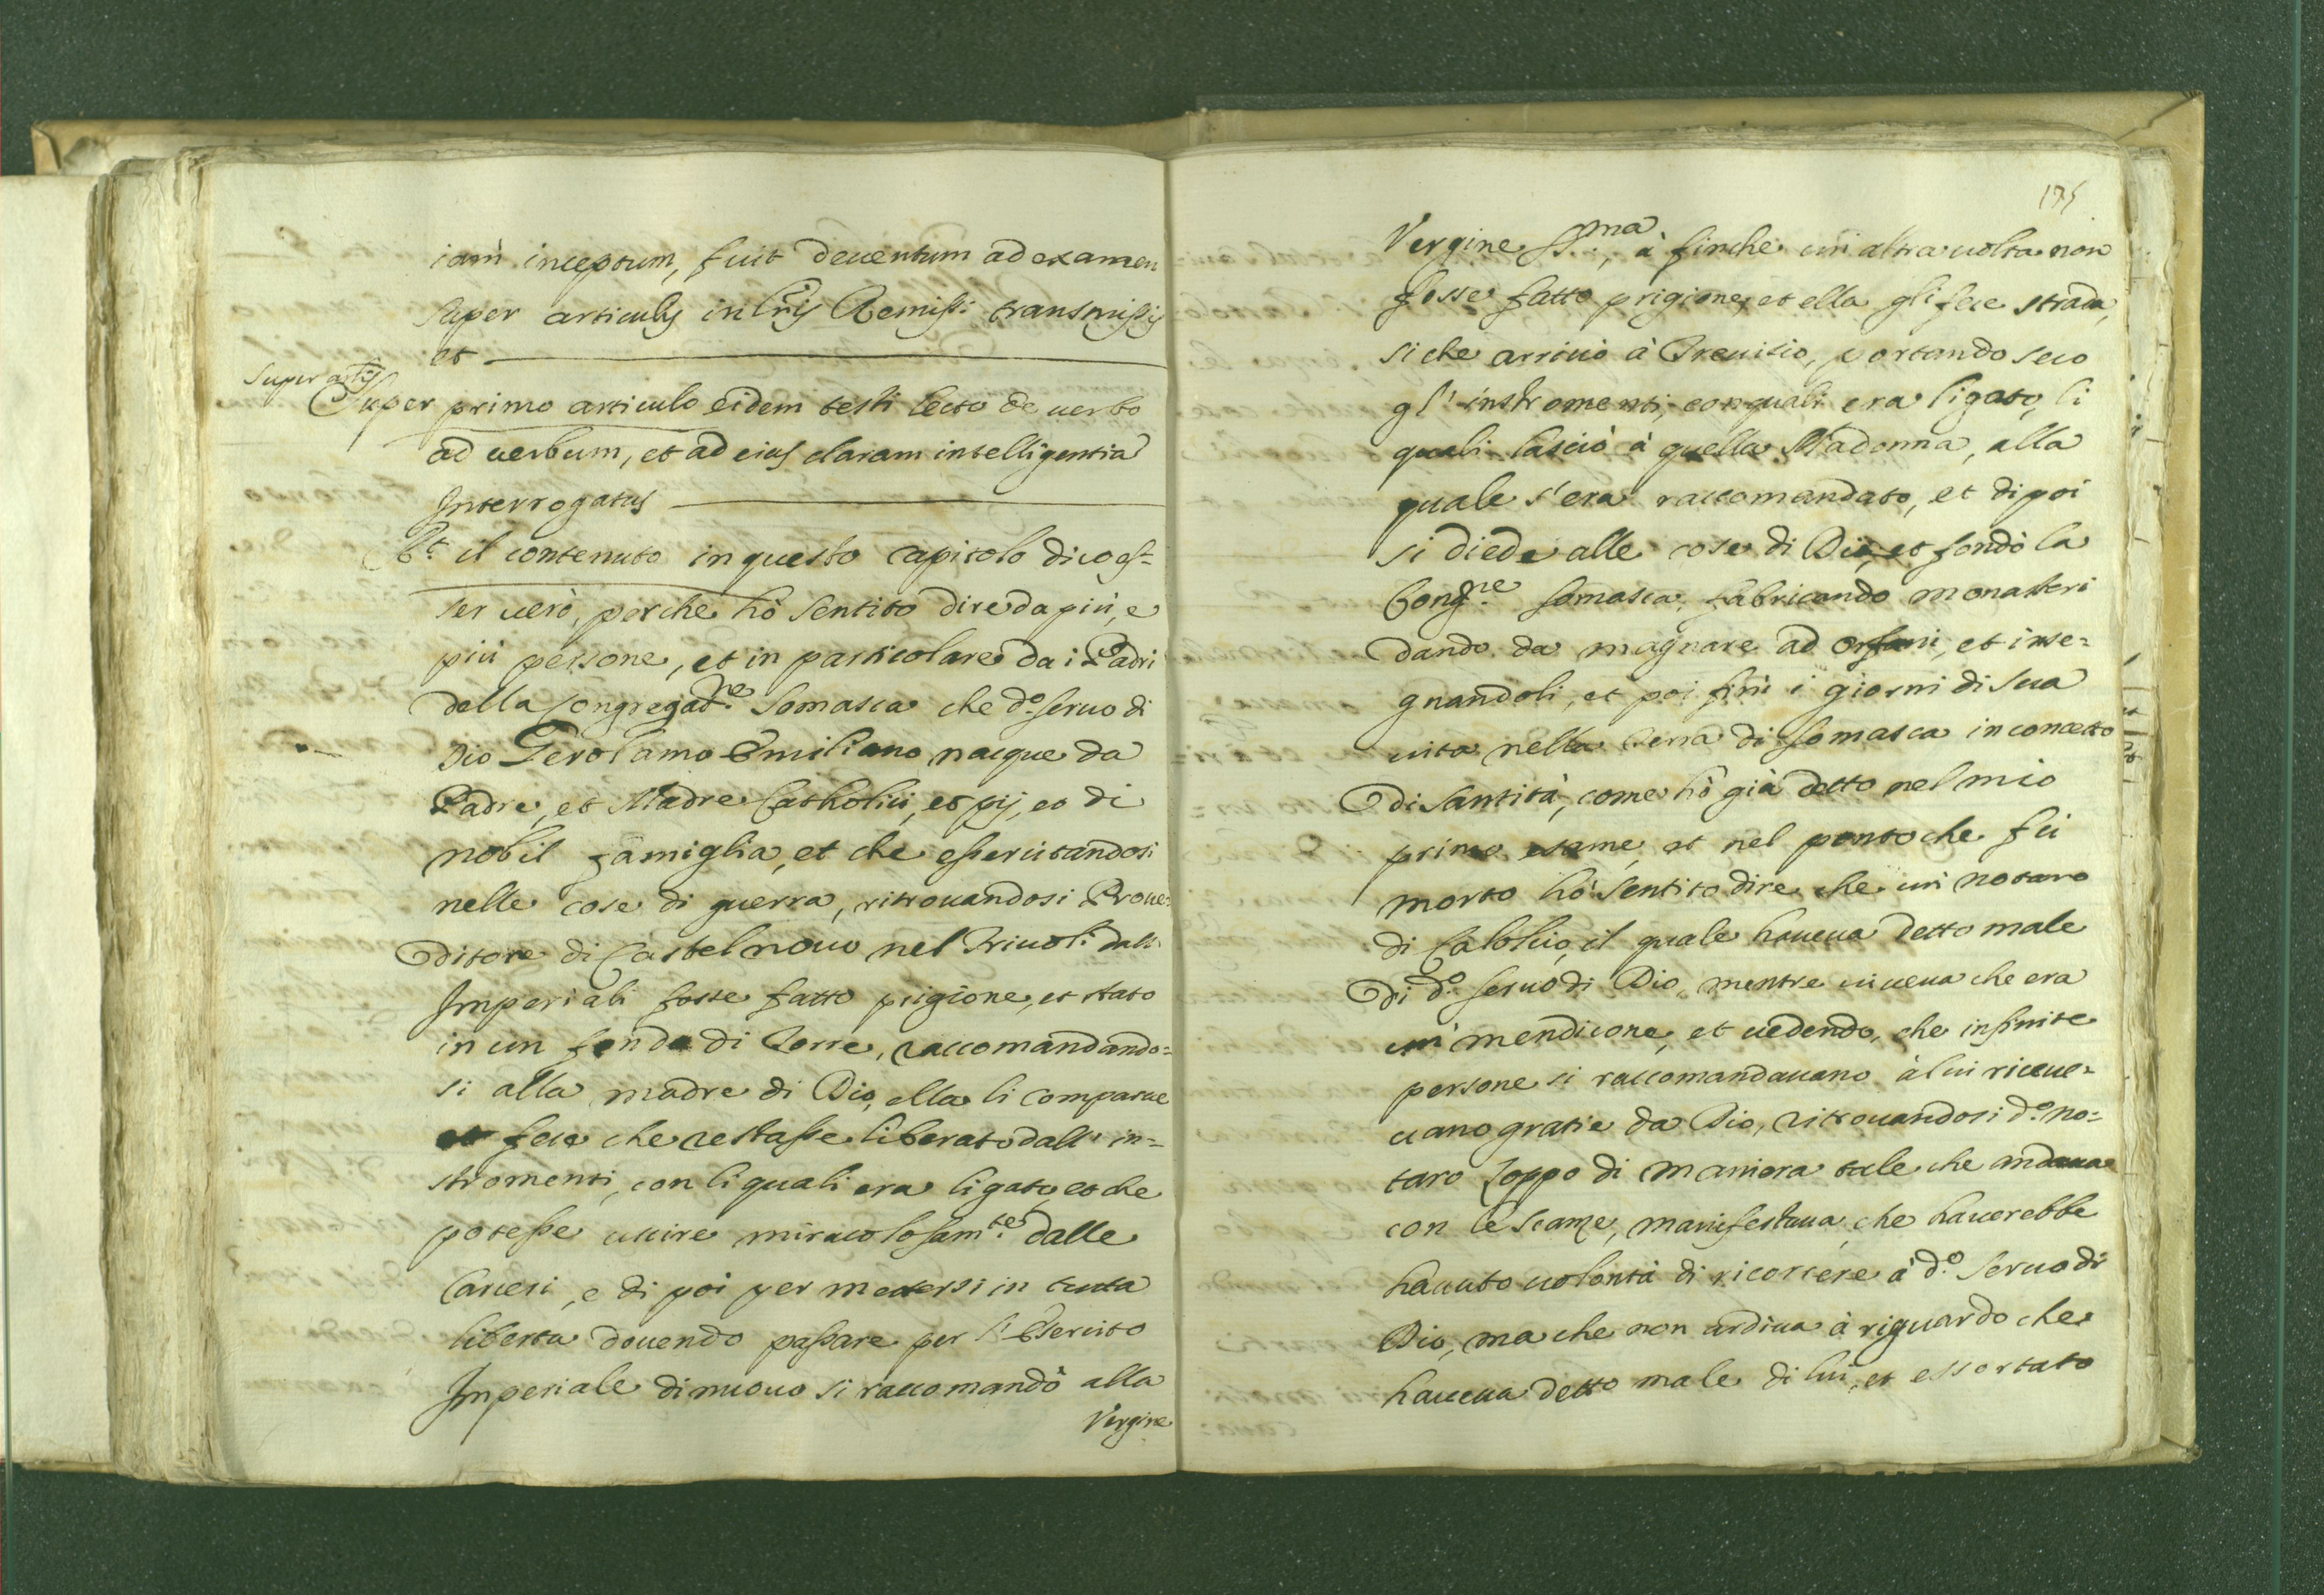 iam inceptum, fuit deuentum ad examen
super articulis in lris Remiss: transmissis
et
super artis
Super primo articulo eidem testi lecto de uerbo
ad uerbum, et ad eius claram intelligentia
Interrogatus
Rt il contenuto in questo capitolo dico es=
ser uero, perche hò sentito dire da più, e
più persone, et in particolare da i Padri
della Congregatne Somasca che do seruo di
Dio Gerolamo Emiliano nacque da
Padre, et Madre Catholici, et pij, et di
nobil famiglia, et che essercitandosi
nelle cose di guerra, ritrouandosi Proue=
ditore di Castelnouo nel Friuoli dall'
Imperiali fosse fatto prigione, et stato
in un fondo di Torre, raccomandando=
si alla madre di Dio, ella li comparue
et fece che restasse liberato dall' in=
stromenti, con li quali era ligato, et che
potesse uscire miracolosamte dalle
Carceri, e di poi per mettersi in tutta
libertà douendo passare per l'Esercito
Imperiale di nuouo si raccomandò alla
Vergine
175
Vergine Sma, à finche un'altra uolta non
fosse fatto prigione, et ella gli fece strada,
si che arriuò à Treuisio, portando seco
gl' instromenti, con quali era ligato, li
quali lasciò à quella Madonna, alla
quale s'era raccomandato, et di poi
si diede alle cose di Dio, et fondò la
Congne Somasca, fabricando monasteri
dando da magnare ad orfani, et inse=
gnandoli, et poi finì i giorni di sua
uita nella Terra di Somasca in concetto
di santità, come hò già detto nel mio
primo esame, et nel ponto che fù
morto hò sentito dire che un' notaro
di Calolcio, il quale haueua detto male
di do seruo di Dio, mentre uiueua che era
un' mendicone, et uedendo, che infinite
persone si raccomandauano à lui riceue=
uano gratie da Dio, ritrouandosi do no=
taro zoppo di maniera tale che andaua
con le scanze, manifestaua, che hauerebbe
hauuto uolontà di ricorrere à do seruo di
Dio, ma che non ardiua à riguardo che
haueua detto male di lui, et essortato